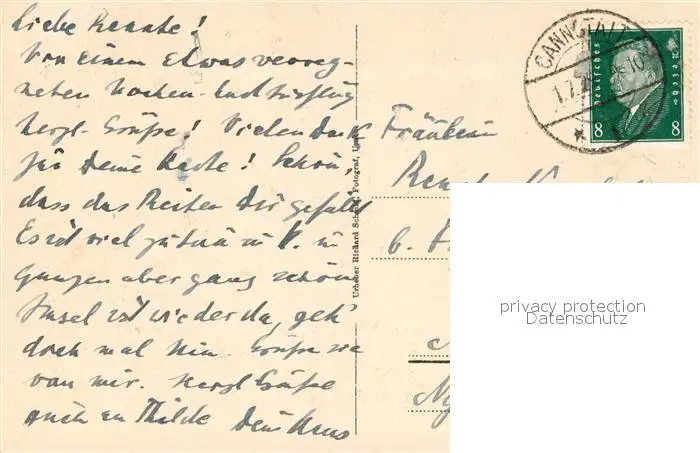 Liebe Renate!
Von einem etwas verreg-
neten Wochen-Endausflug
herzl. Grüße! Vielen Dank
für Deine Karte! Schön,
dass das Reiten Dir gefällt
Es ist viel zu tun in V. im
Ganzen aber ganz schön
Insel ist wieder da, geh'
doch mal hin. Grüße sie
von mir. Herzl Grüße
auch an Thilde Dein Hans
Fräulein
CANNSTATT
1.7.
Deutsches Reich
8 8
Urheber Richard
Fotograf,
privacy protection
Datenschutz